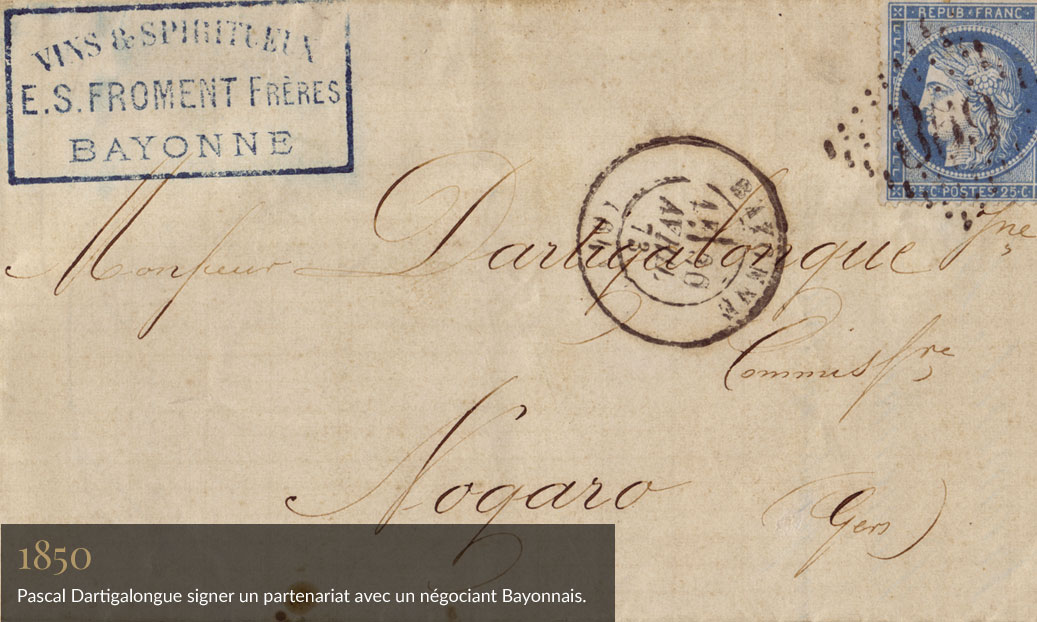 VINS & SPIRITUEUX
E.S. FROMENT FRÈRES
BAYONNE
REPUB · FRANC ·
25 C · POSTES · 25 C ·
BAYONNE
AVRIL
73
Monsieur Dartigalongue Jne
Commissre
Nogaro (Gers)
1850
Pascal Dartigalongue signer un partenariat avec un négociant Bayonnais.